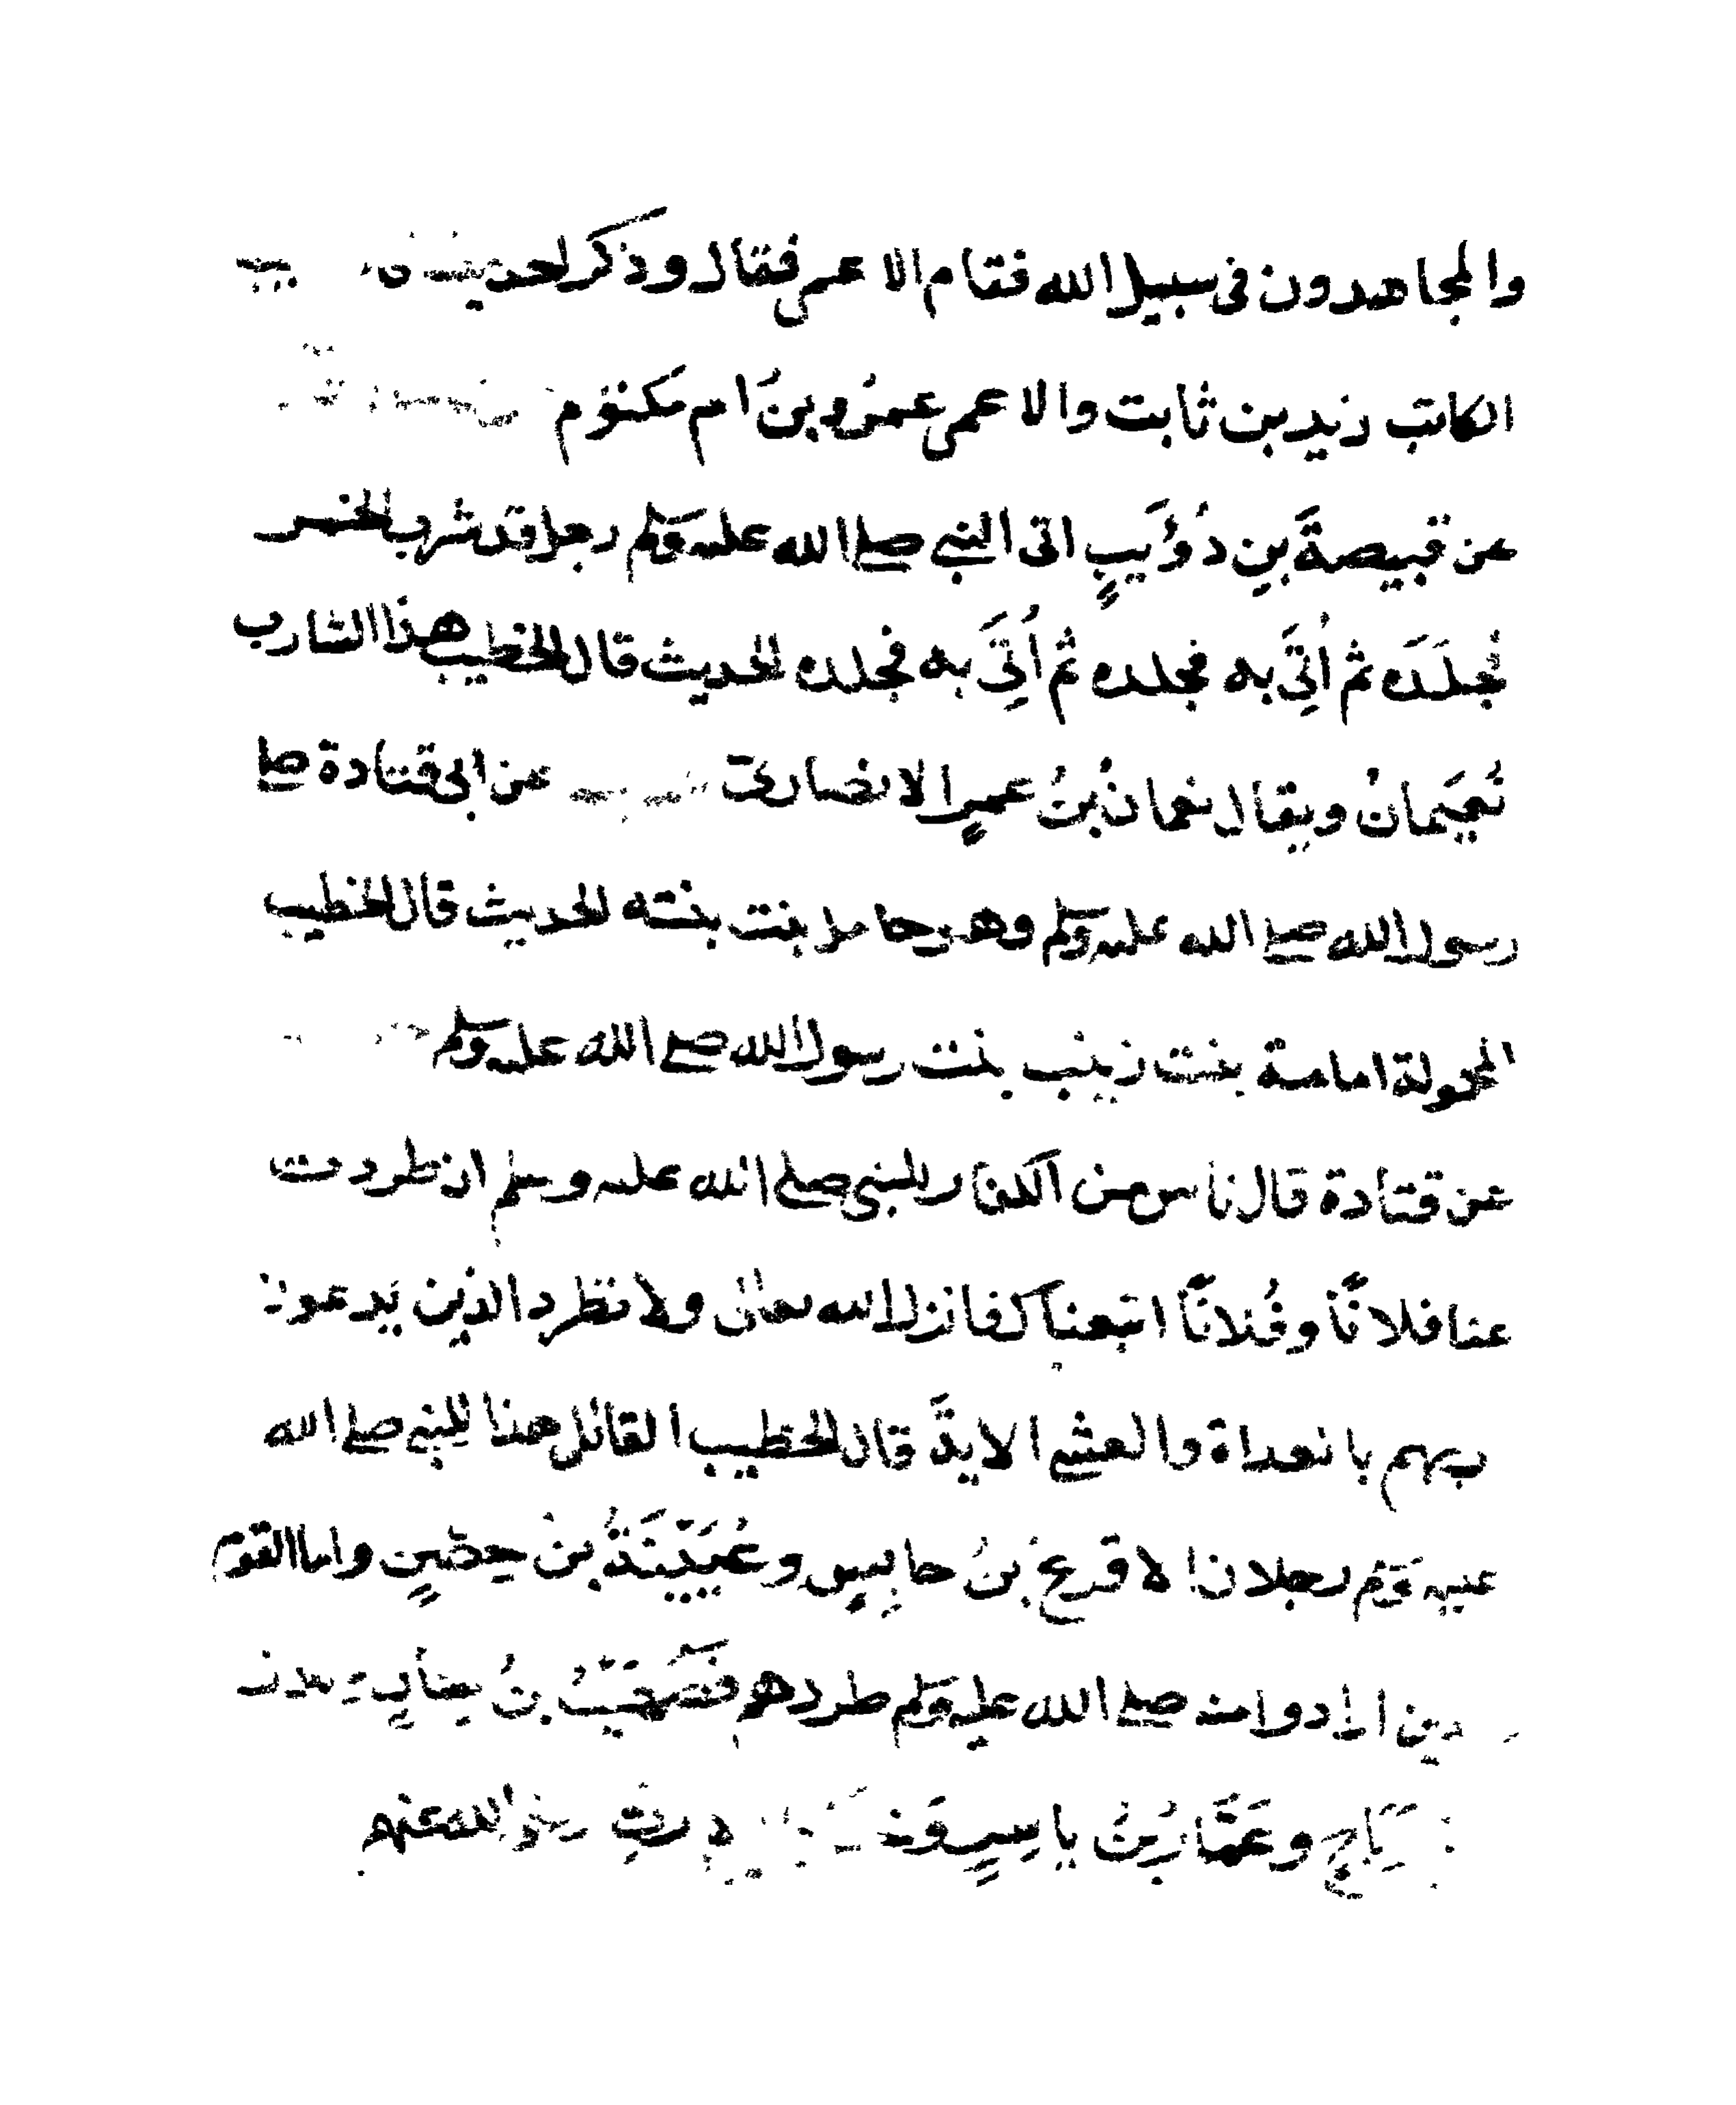 والمجاهدون في سبيل الله فقام الاعمى فقال وذكر الحديث
الكاتب زيد بن ثابت والاعمى عمرُو بنُ ام مكتوم
عن قبيصةَ بنِ ذُؤَيبٍ اتى النبي صلى الله عليه وسلم رجل قد شرب الخمر
فجلَدَه ثم اُتِيَ به فجلده ثم اُتِيَ به فجلده الحديث قال الخطيب هذا الشارب
نُعَيمانُ ويقال نعمانُ بنُ عميرٍ الانصاري عن ابي قتادة صلى
رسول الله صلى الله عليه وسلم وهو حامل بنت بنته الحديث قال الخطيب
المحمولة امامة بنت زينب بنت رسول الله صلى الله عليه وسلم
عن قتادة قال ناس من الكفار للنبي صلى الله عليه وسلم ان طردت
عنا فلانًا وفُلانًا اتبعناك فانزل الله تعالى ولا تطرد الذين يدعون
ربهم بالغداة والعشي الاية قال الخطيب القائل هذا للنبي صلى الله
عليه وسلم رجلان الاقرعُ بنُ حابِسٍ وعُيَيْنَةُ بنُ حِصْنٍ واما القوم
الذين ارادوا منه صلى الله عليه وسلم طردهم فصُهَيبُ بنُ سِنانٍ وبلال
بن رَبَاحٍ وعَمَّارُ بنُ ياسِرٍ الارتِ رضي الله عنهم